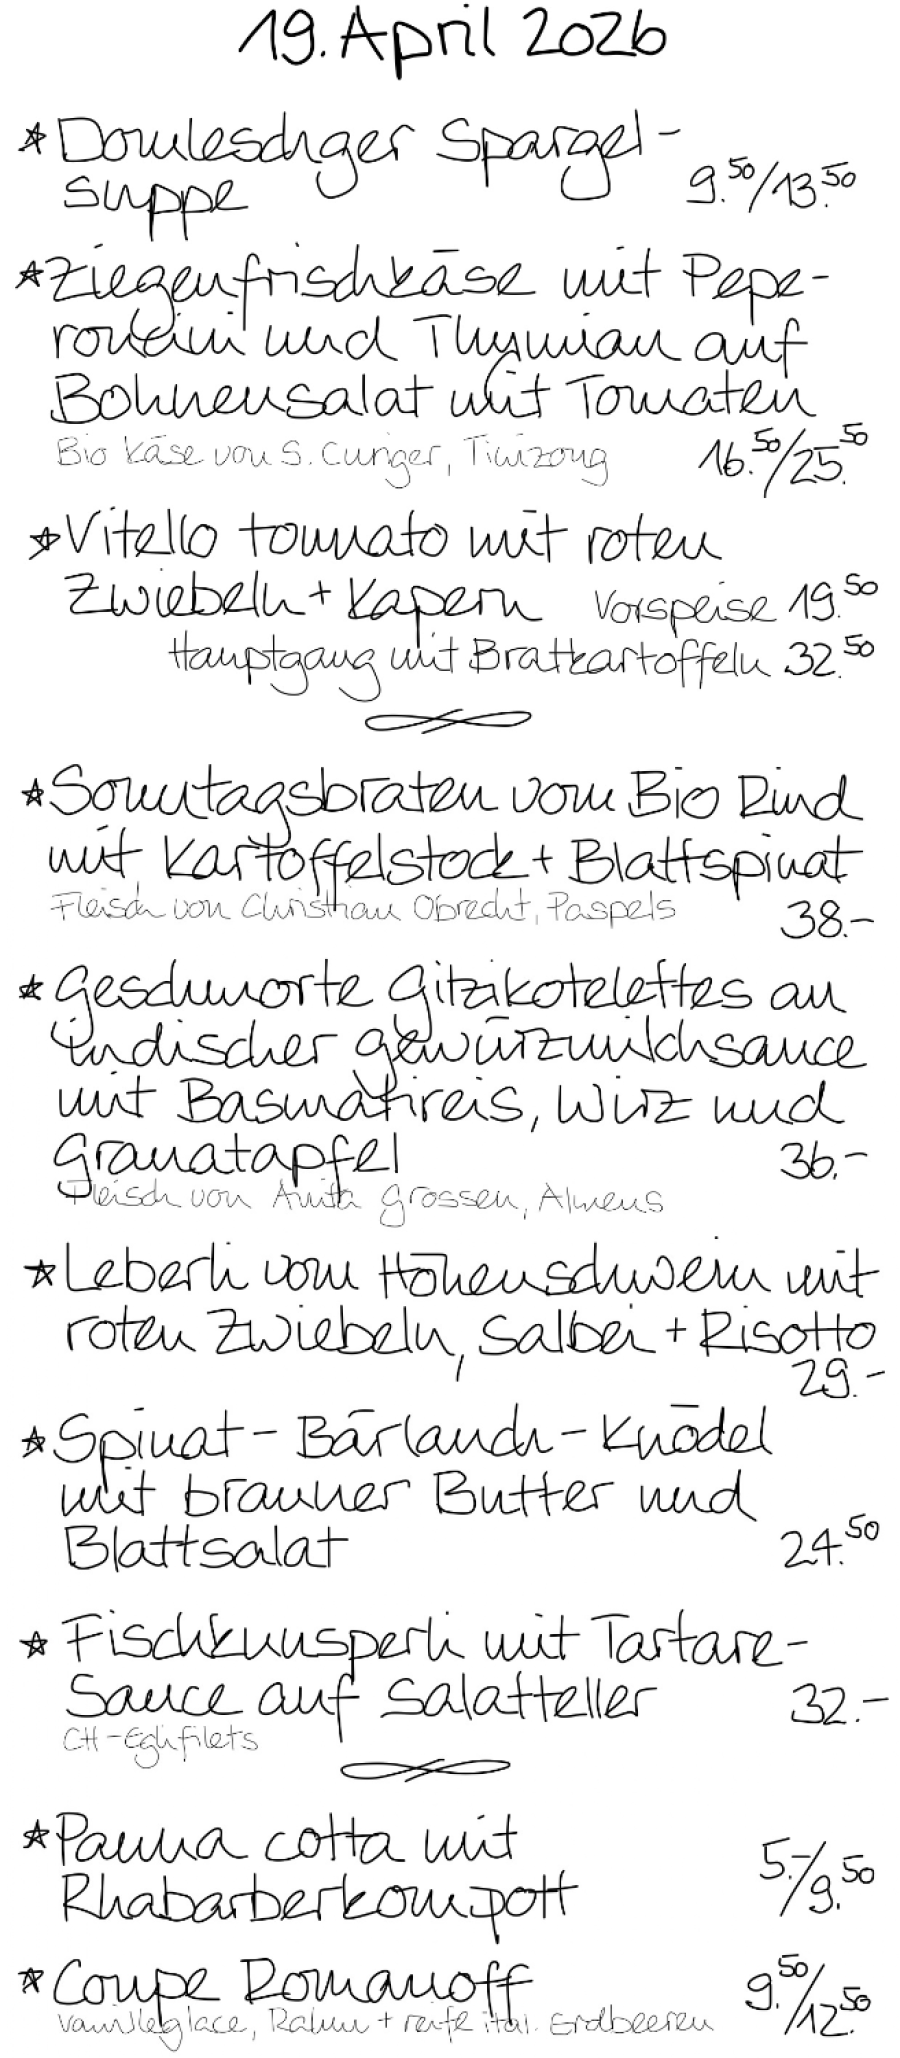 19. April 2026
* Domleschger Spargel-
suppe 9.50/13.50
* Ziegenfrischkäse mit Pepe-
roncini und Thymian auf
Bohnensalat mit Tomaten
Bio Käse von S. Curiger, Tinizong 16.50/25.50
* Vitello tonnato mit roten
Zwiebeln + Kapern Vorspeise 19.50
Hauptgang mit Bratkartoffeln 32.50
* Sonntagsbraten vom Bio Rind
mit Kartoffelstock + Blattspinat
Fleisch von Christian Obrecht, Paspels 38.-
* Geschmorte Gitzikotelettes an
indischer Gewürzmilchsauce
mit Basmatireis, Wirz und
Granatapfel 36.-
Fleisch von Anita Grossen, Almens
* Leberli vom Höhenschwein mit
roten Zwiebeln, Salbei + Risotto
29.-
* Spinat-Bärlauch-Knödel
mit brauner Butter und
Blattsalat 24.50
* Fischknusperli mit Tartare-
Sauce auf Salatteller 32.-
CH-Eglifilets
* Panna cotta mit
Rhabarberkompott 5.-/9.50
* Coupe Romanoff 9.50/12.50
Vanilleglace, Rahm + reife ital. Erdbeeren